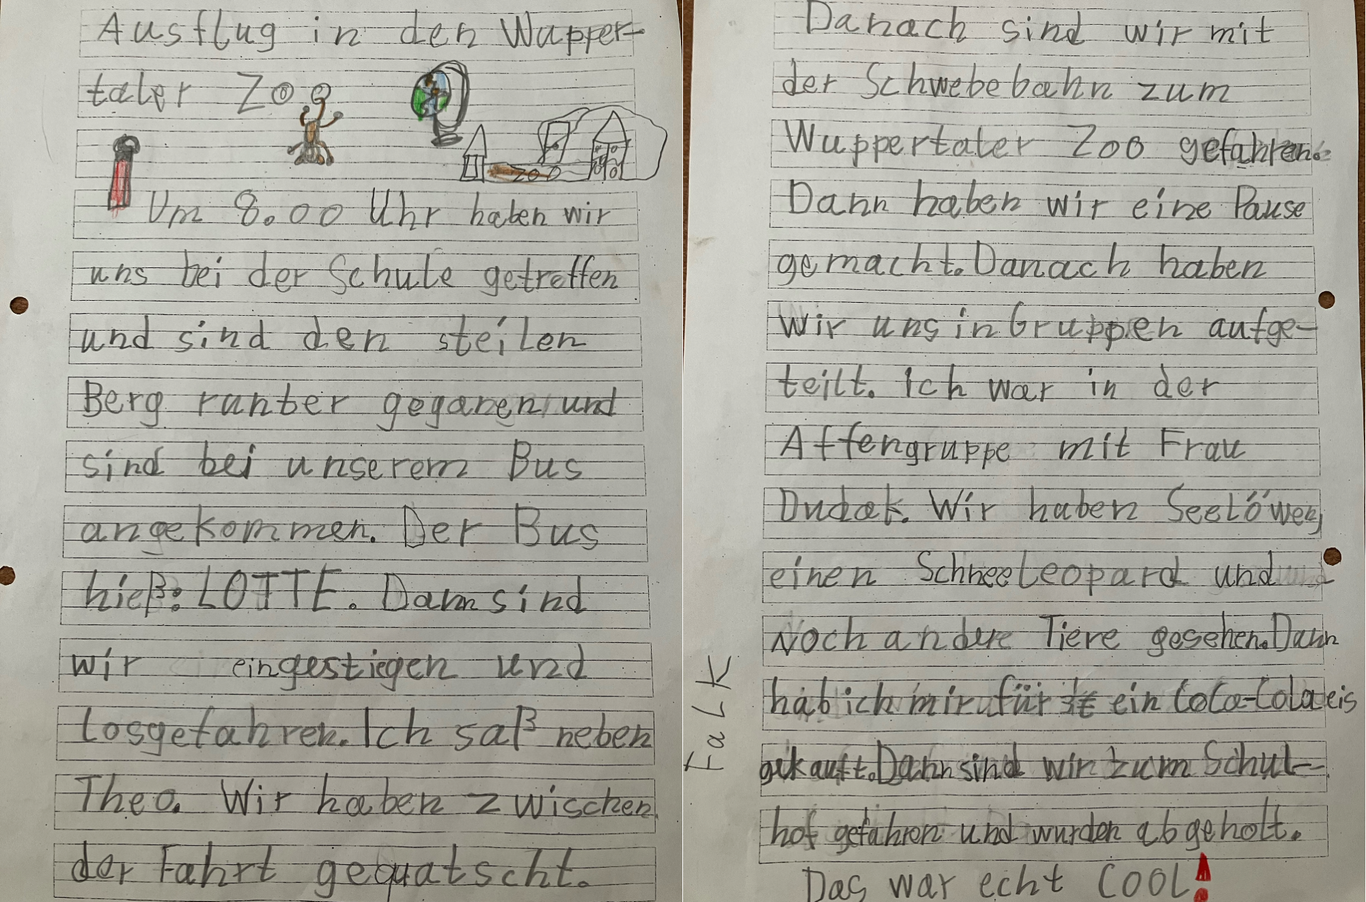 Ausflug in den Wupper-
taler Zoo
ZOO
Um 8.00 Uhr haben wir
uns bei der Schule getroffen
und sind den steilen
Berg runter gegangen und
sind bei unserem Bus
angekommen. Der Bus
hieß: LOTTE. Dann sind
wir eingestiegen und
losgefahren. Ich saß neben
Theo. Wir haben zwischen
der Fahrt gequatscht.
Danach sind wir mit
der Schwebebahn zum
Wuppertaler Zoo gefahren.
Dann haben wir eine Pause
gemacht. Danach haben
Wir uns in Gruppen aufge-
teilt. Ich war in der
Affengruppe mit Frau
Dudak. Wir haben Seelöwen,
einen Schneeleopard und
Noch andere Tiere gesehen. Dann
hab ich mir für ein Cola-Cola eis
gekauft. Dann sind wir zum Schul-
hof gefahren und wurden abgeholt.
Das war echt COOL!
FaLK